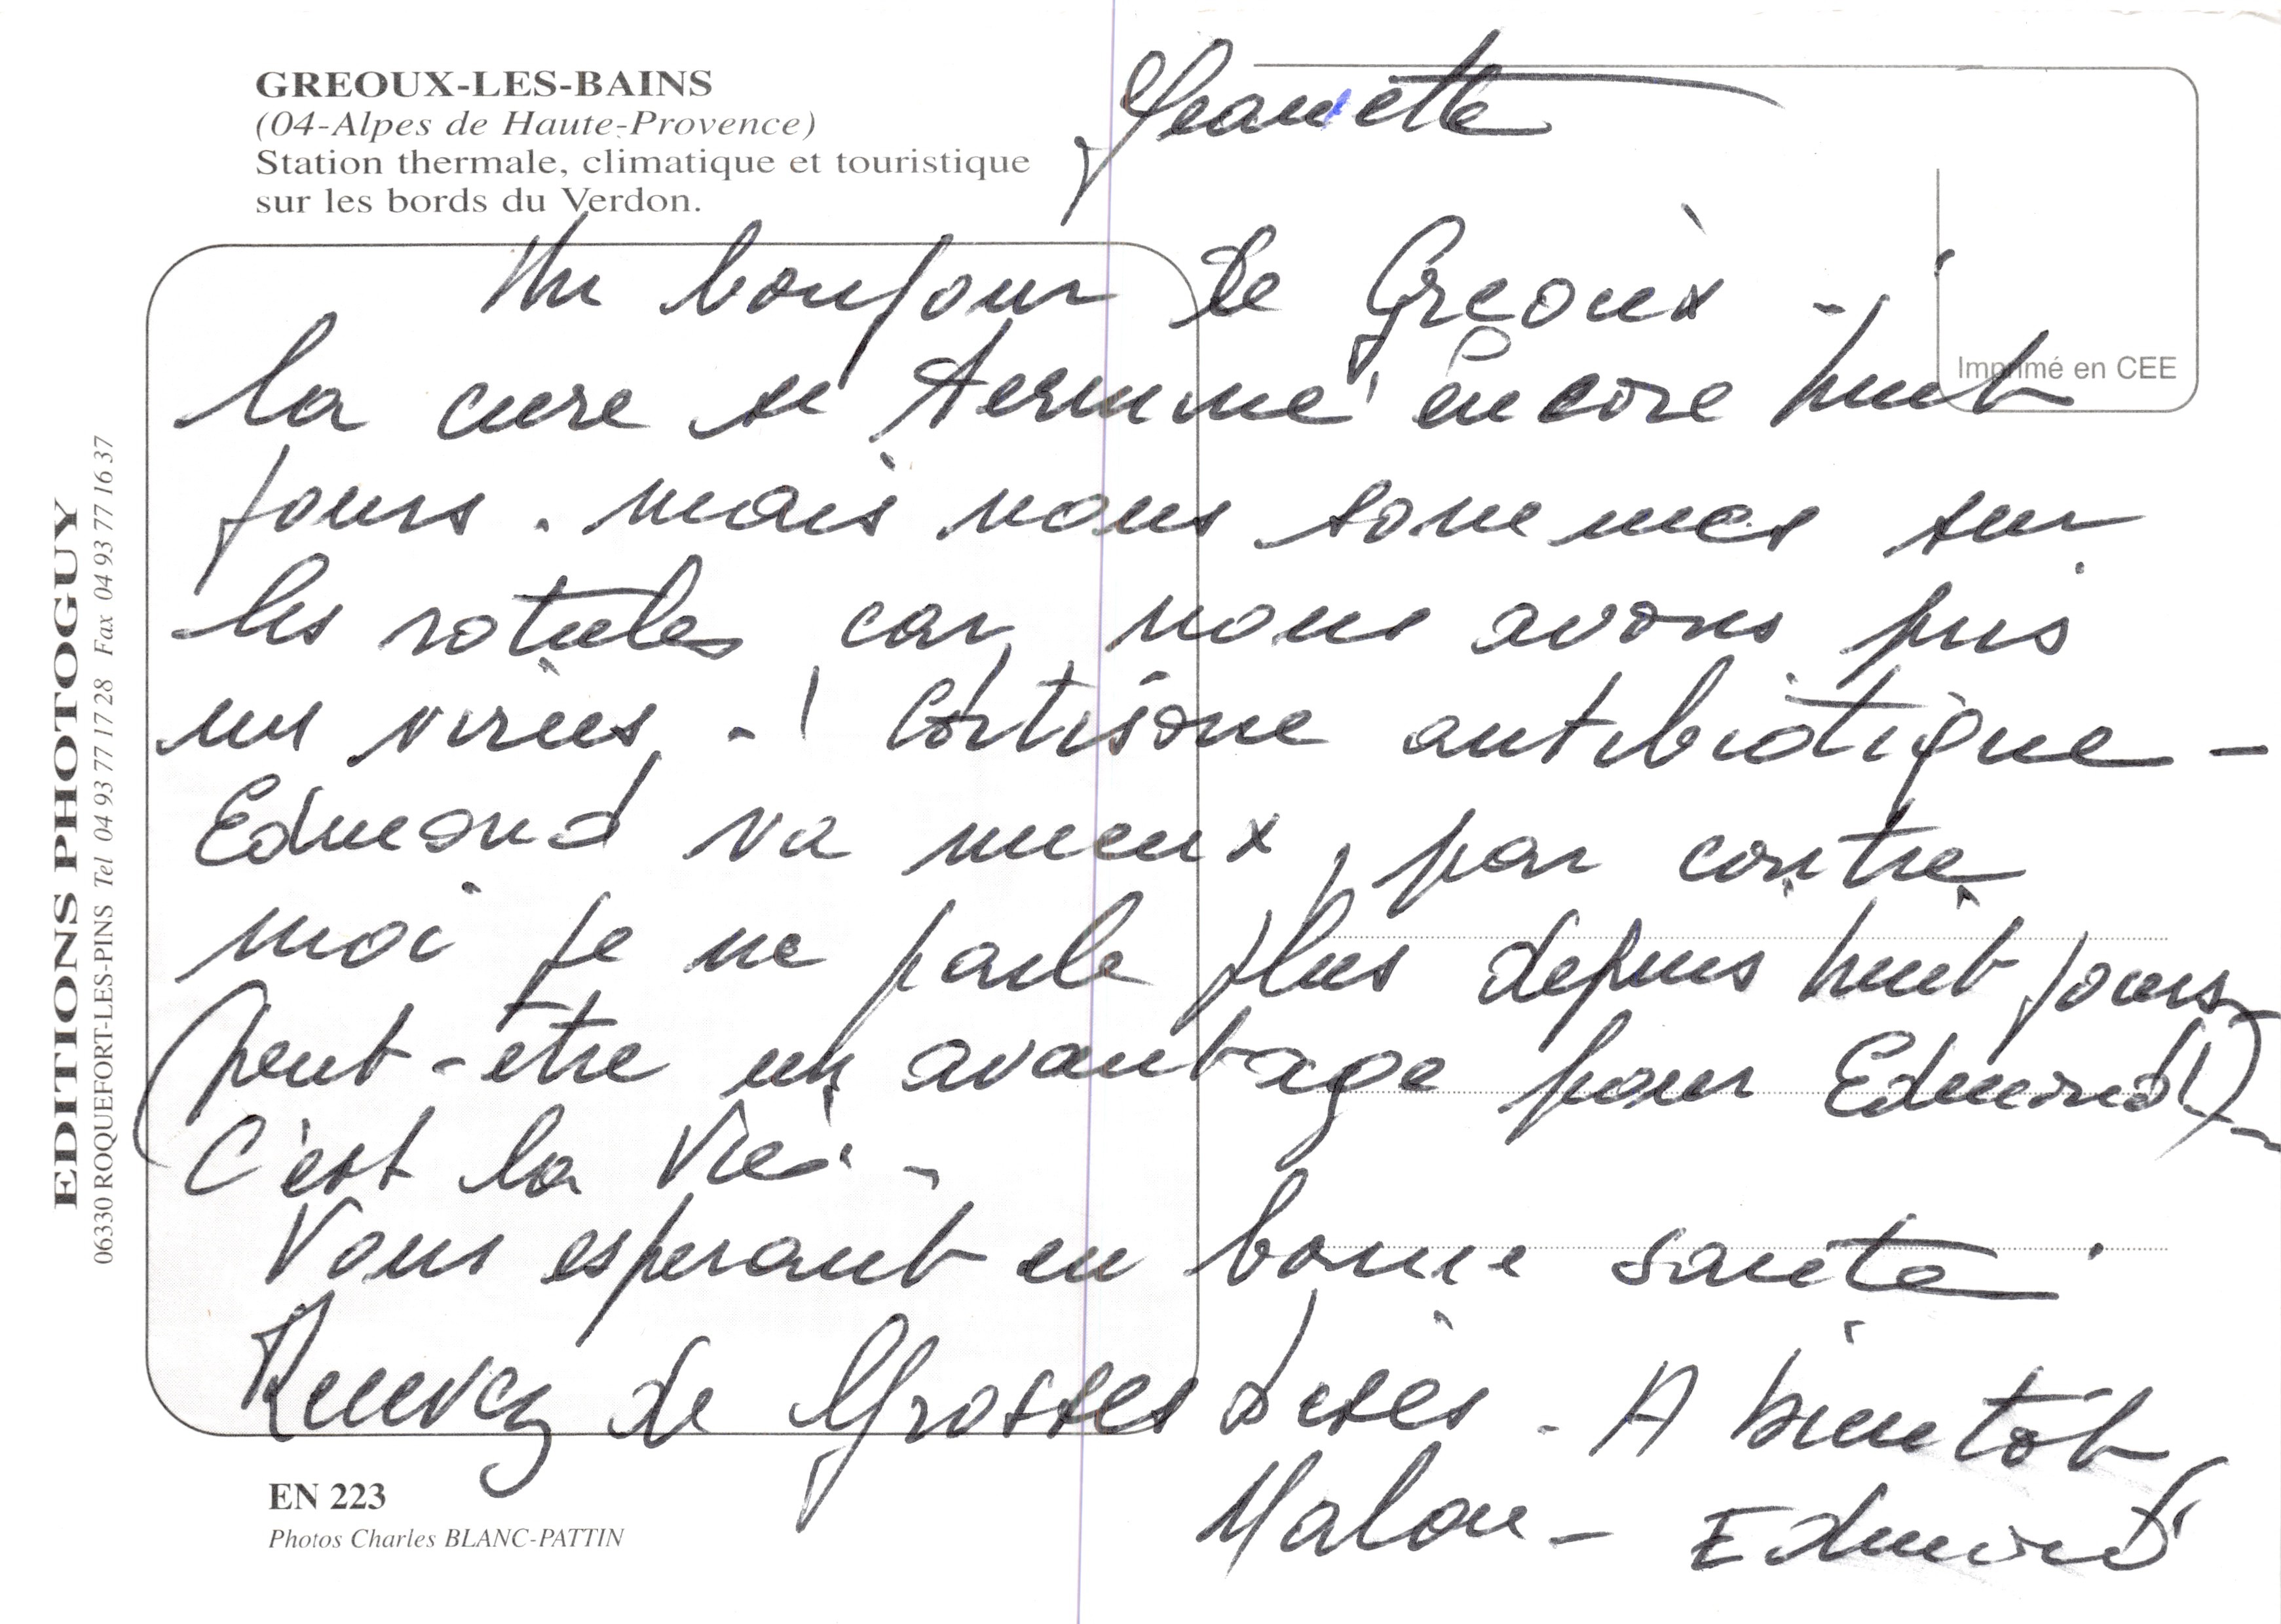 GREOUX-LES-BAINS
(04-Alpes de Haute-Provence)
Station thermale, climatique et touristique
sur les bords du Verdon.
Jeanette
Un bonjour de Greoux -
la cure se termine encore huit
jours. mais nous sommes sur
les rotules car nous avons pris
un virus - ! Cortisone antibiotique -
Edmond va mieux, par contre
moi je ne parle plus depuis huit jours
(peut-être un avantage pour Edmond!) -
C'est la Vie -
Vous esperant en bonne santé.
Recevez de Grosses bises - A bientôt
Malou - Edmond
Imprimé en CEE
EDITIONS PHOTOGUY
06330 ROQUEFORT-LES-PINS Tel 04 93 77 17 28 Fax 04 93 77 16 37
EN 223
Photos Charles BLANC-PATTIN